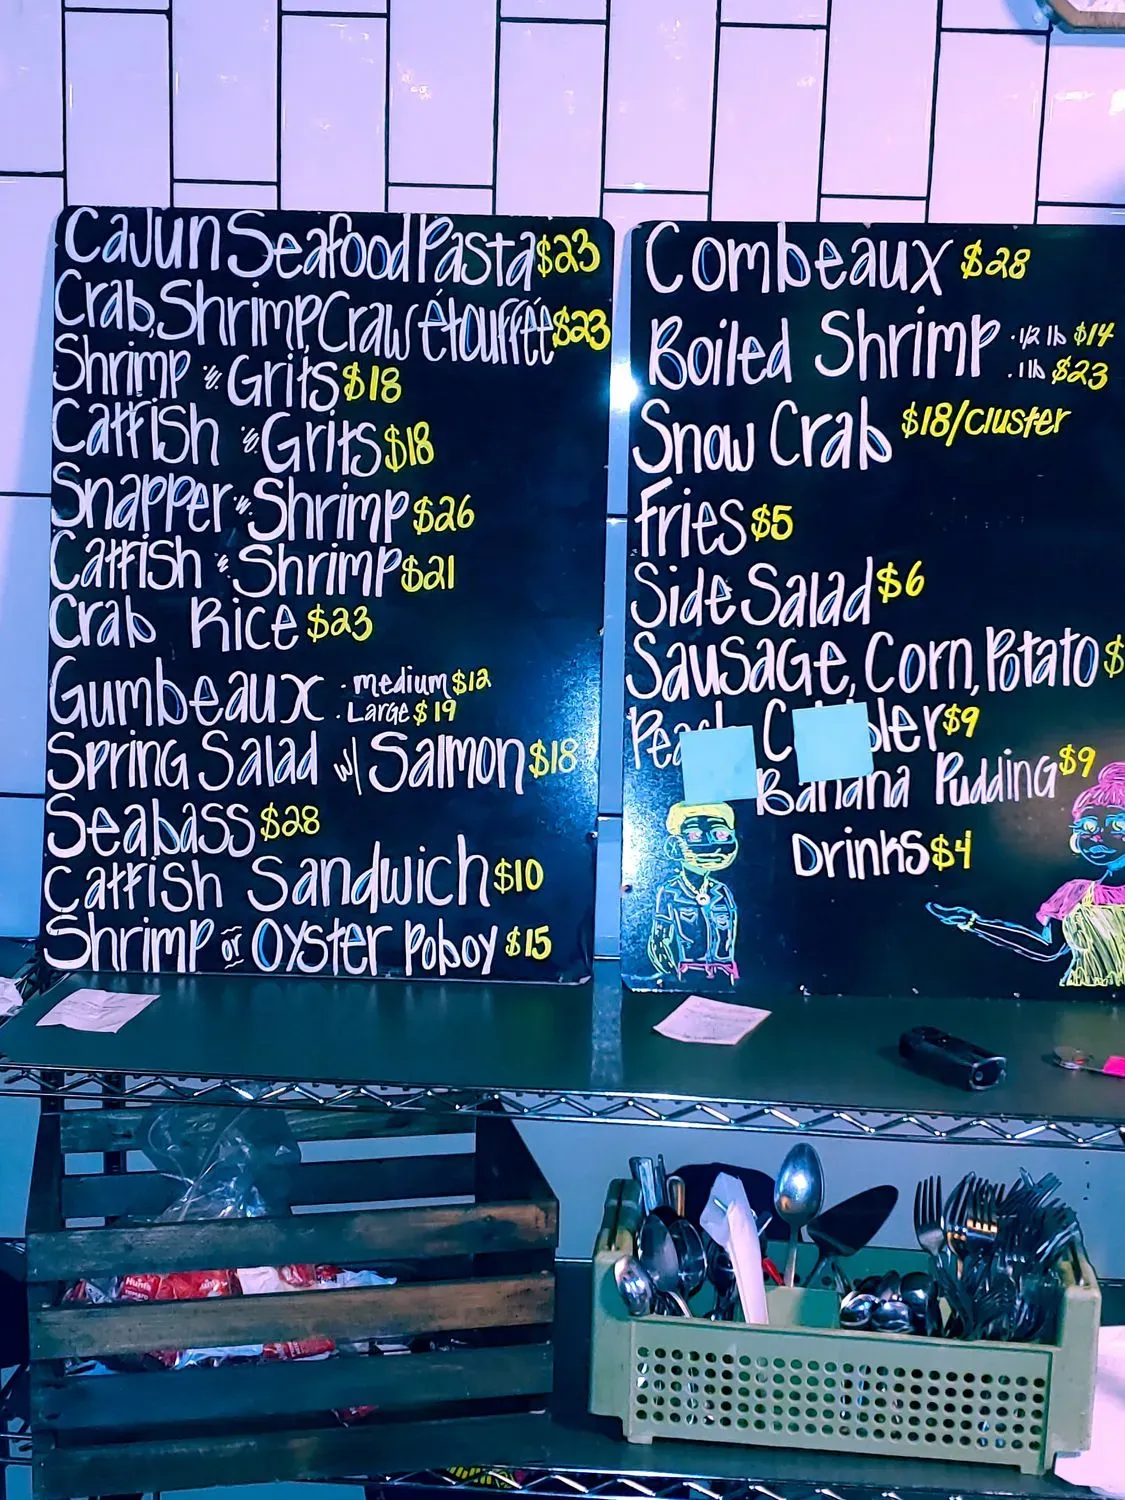 Cajun Seafood Pasta $23
Crab, Shrimp, Craw étouffée $23
Shrimp & Grits $18
Catfish & Grits $18
Snapper & Shrimp $26
Catfish & Shrimp $21
Crab Rice $23
Gumbeaux · medium $12
· Large $19
Spring Salad w/ Salmon $18
Seabass $28
Catfish Sandwich $10
Shrimp or Oyster Poboy $15
Combeaux $28
Boiled Shrimp · 1/2 lb $14
· 1 lb $23
Snow Crab $18/cluster
Fries $5
Side Salad $6
Sausage, Corn, Potato $
Pea C bler $9
Banana Pudding $9
Drinks $4
Hunt's